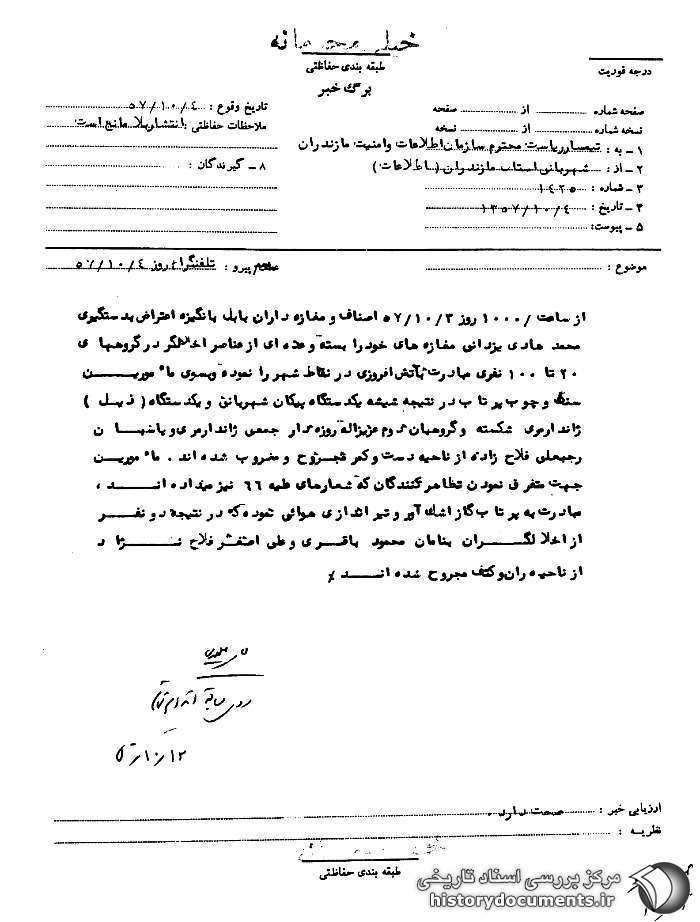 خیلی محرمانه
طبقه بندی حفاظتی
برگ خبر
درجه فوریت
صفحه شماره ........ از ........ صفحه
نسخه شماره ........ از ........ نسخه
۱ - به : تیمسار ریاست محترم سازمان اطلاعات وامنیت مازندران
۲ - از : شهربانی استان مازندران (اطلاعات)
۳ - شماره : ۱۴۲۵
۴ - تاریخ : ۱۳۵۷/۱۰/۴
۵ - پیوست:
تاریخ وقوع : ۵۷/۱۰/۴
ملاحظات حفاظتی : انتشار بلا مانع است
۸ - گیرندگان :
موضوع :
پیرو : تلفنگرام روز ۵۷/۱۰/۴
از ساعت /۱۰۰۰ روز ۵۷/۱۰/۳ اصناف و مغازه داران بابل بانگیزه اعتراض بدستگیری
محمد هادی یزدانی مغازه های خود را بسته و عده ای از عناصر اخلالگر در گروههای
۲۰ تا ۱۰۰ نفری مبادرت بآتش افروزی در نقاط شهر را نموده وبسوی مامورین
سنگ و چوب پرتاب در نتیجه شیشه یکدستگاه پیکان شهربانی و یکدستگاه ( ذیل )
ژاندارمری شکسته وگروهبان دوم عزیزاله روزه دار جمعی ژاندارمری و پاسبان
رجبعلی فلاح زاده از ناحیه دست و کمر مجروح و مضروب شده اند . مامورین
جهت متفرق نمودن تظاهر کنندگان که شعارهای علیه ۶۶ نیز میداده اند ،
مبادرت به پرتاب گاز اشک آور و تیر اندازی هوائی نموده که در نتیجه دو نفر
از اخلالگران بنامان محمود باقری و علی اصغر فلاح نژاد
از ناحیه ران و کتف مجروح شده اند /
۵۷/۱۰/۱۲
ارزیابی خبر : صحت دارد .
نظریه :
طبقه بندی حفاظتی
مرکز بررسی اسناد تاریخی
historydocuments.ir